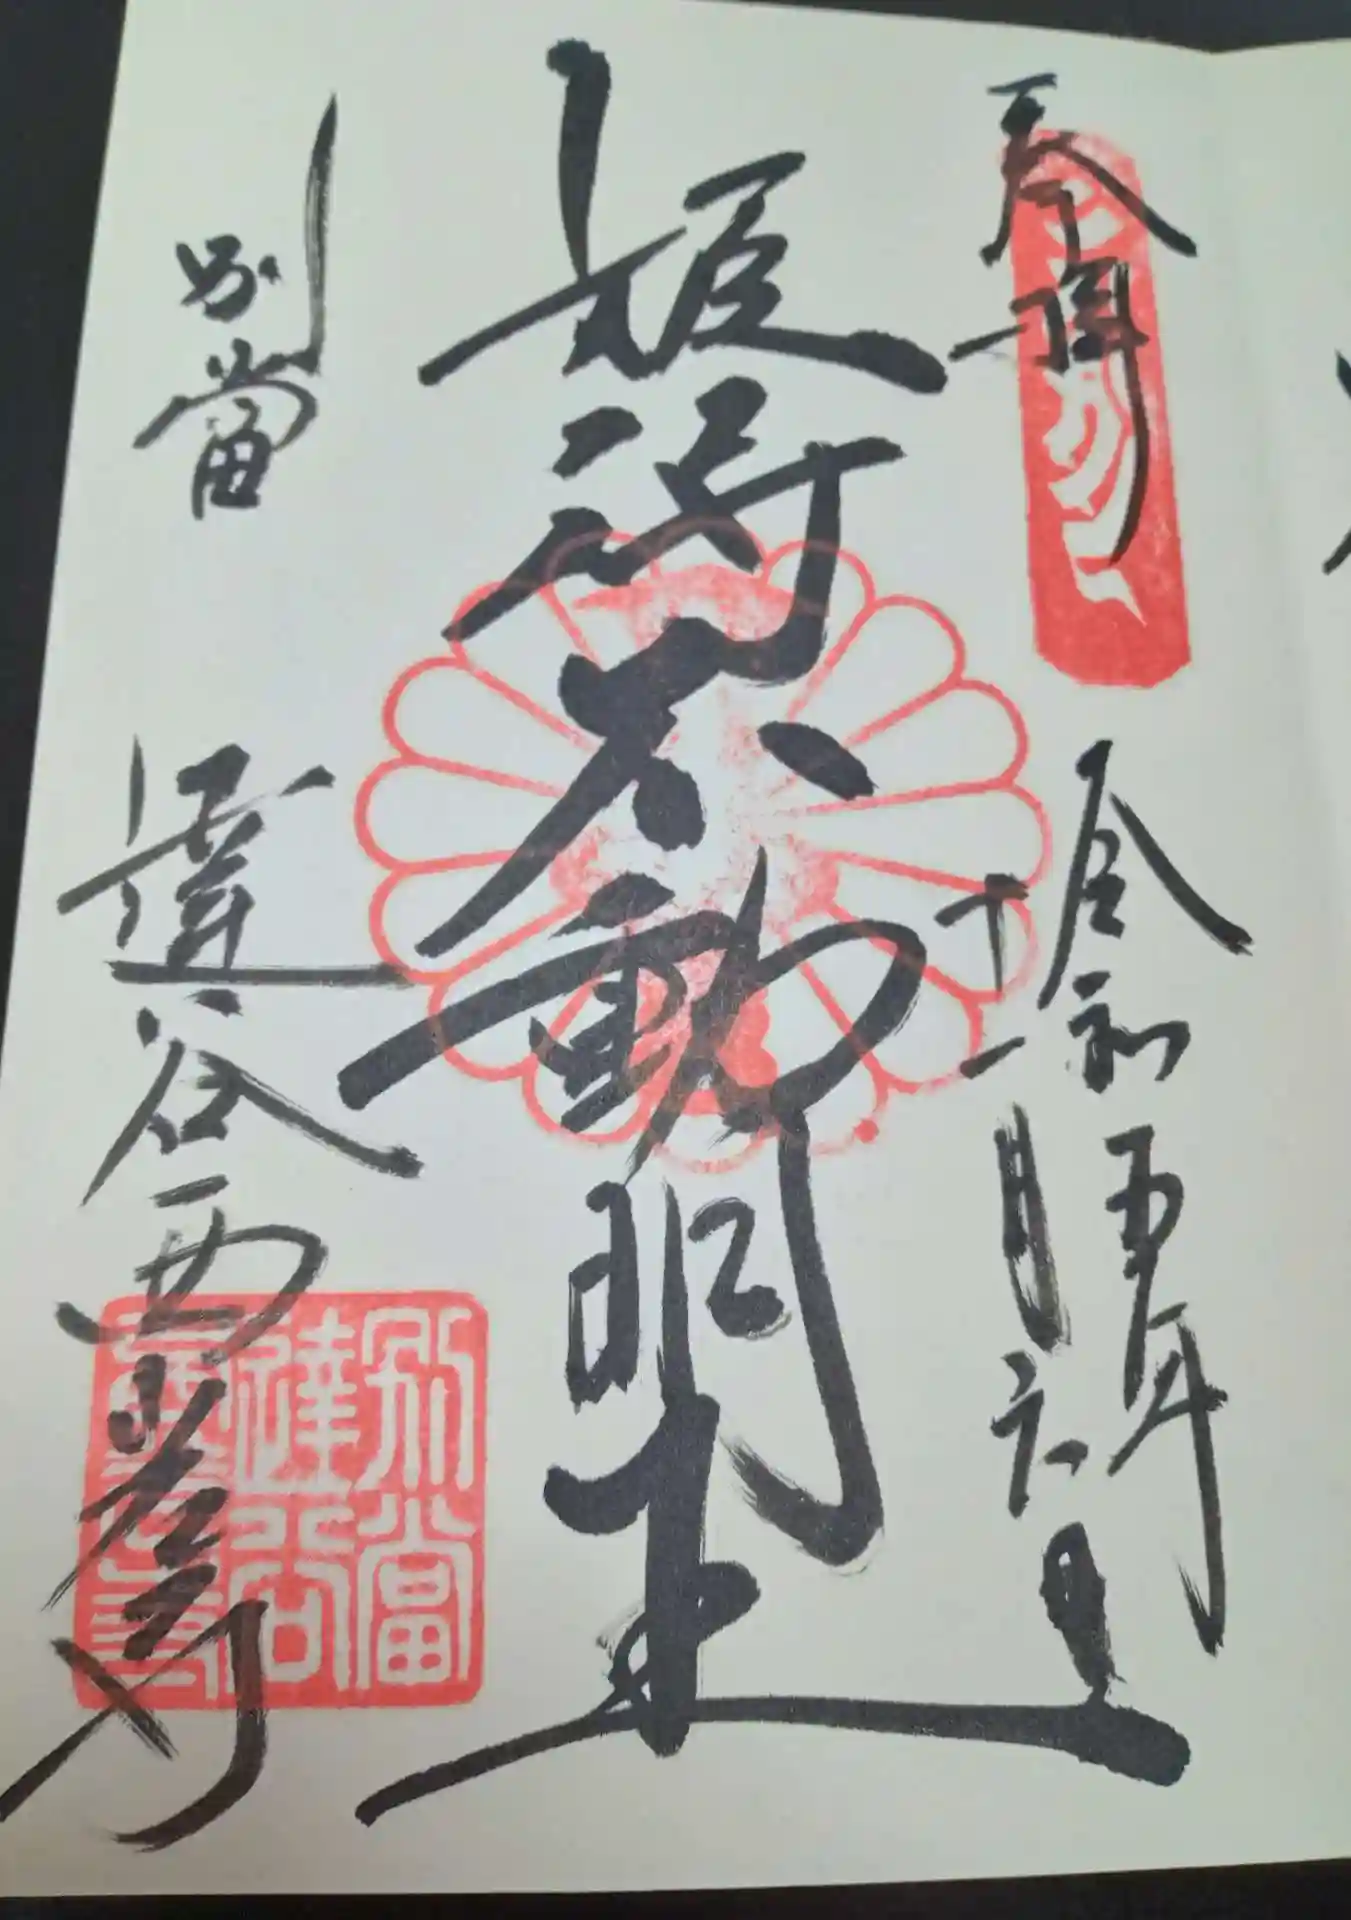 奉拝
令和五年
十一月六日
姫待不動明王
別當
達谷西光寺
別當
達谷